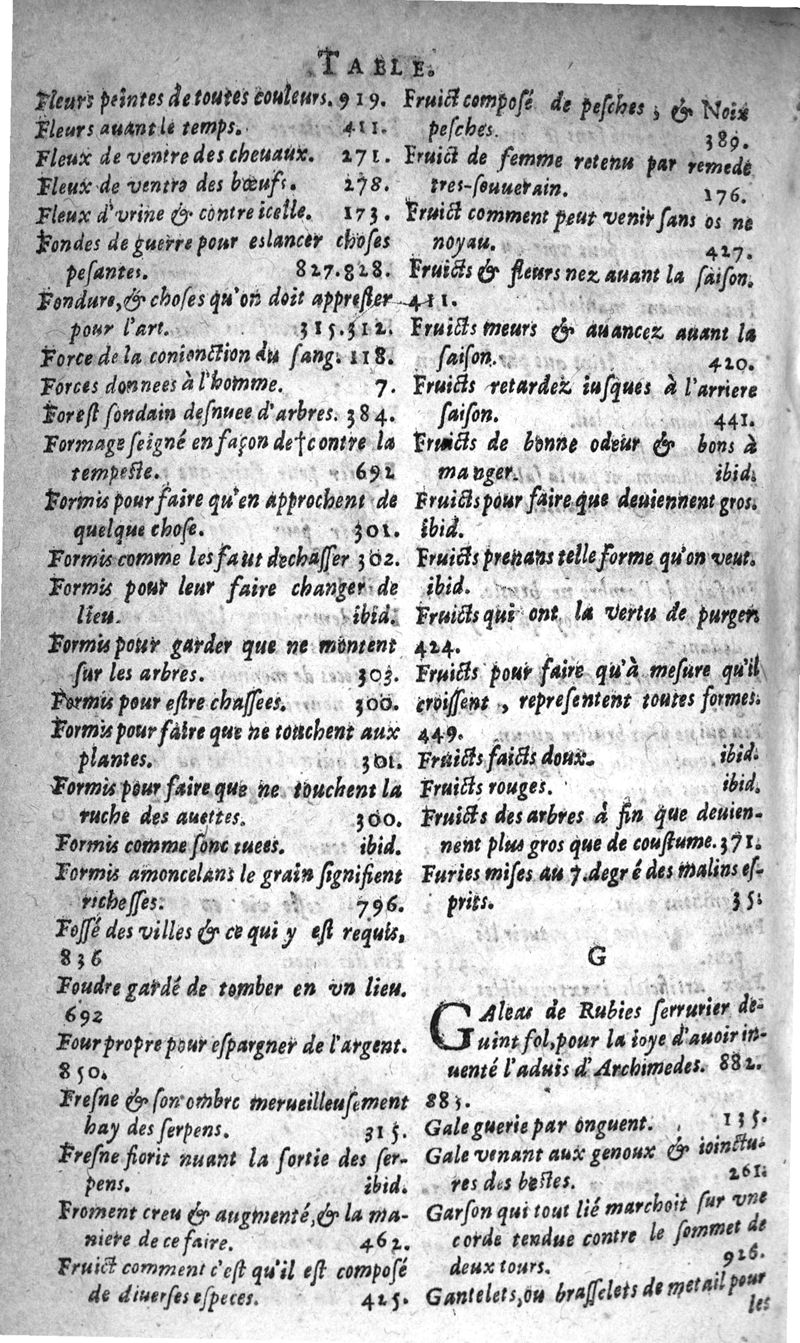 TABLE.
Fleurs peintes de toutes couleurs. 919.
Fleurs auant le temps. 411.
Fleux de ventre des cheuaux. 271.
Fleux de ventre des bœufs. 278.
Fleux d'vrine & contre icelle. 173.
Fondes de guerre pour eslancer choses
pesantes. 827.828.
Fondure, & choses qu'on doit apprester
pour l'art. 315.312.
Force de la conionction du sang. 118.
Forces donnees à l'homme. 7.
Forest soudain desnuee d'arbres. 384.
Formage seigné en façon de † contre la
tempeste. 692
Formis pour faire qu'en approchent de
quelque chose. 301.
Formis comme les faut dechasser 302.
Formis pour leur faire changer de
lieu. ibid.
Formis pour garder que ne montent
sur les arbres. 303.
Formis pour estre chassees. 300.
Formis pour faire que ne touchent aux
plantes. 301.
Formis pour faire que ne touchent la
ruche des auettes. 300.
Formis comme sont tuees. ibid.
Formis amoncelans le grain signifient
richesses. 796.
Fossé des villes & ce qui y est requis,
836
Foudre gardé de tomber en vn lieu.
692
Four propre pour espargner de l'argent.
850.
Fresne & son ombre merueilleusement
hay des serpens. 315.
Fresne fiorit nuant la sortie des ser-
pens. ibid.
Froment creu & augmenté, & la ma-
niere de ce faire. 462.
Fruict comment c'est qu'il est composé
de diuerses especes. 425.
Fruict composé de pesches, & Noix
pesches. 389.
Fruict de femme retenu par remede
tres-souuerain. 176.
Fruict comment peut venir sans os ne
noyau. 427.
Fruicts & fleurs nez auant la saison.
411.
Fruicts meurs & auancez auant la
saison. 420.
Fruicts retardez iusques à l'arriere
saison. 441.
Fruicts de bonne odeur & bons à
manger. ibid.
Fruicts pour faire que deuiennent gros.
ibid.
Fruicts prenans telle forme qu'on veut.
ibid.
Fruicts qui ont la vertu de purger
424.
Fruicts pour faire qu'à mesure qu'il
croissent, representent toutes formes.
449.
Fruicts faicts doux. ibid.
Fruicts rouges. ibid.
Fruicts des arbres à fin que deuien-
nent plus gros que de coustume. 371.
Furies mises au 7. degré des malins es-
prits. 35.
G
GAleas de Rubies serrurier de-
uint fol, pour la ioye d'auoir in-
uenté l'aduis d'Archimedes. 882.
883.
Gale guerie par onguent. 135.
Gale venant aux genoux & ioinctu-
res des bestes. 261.
Garson qui tout lié marchoit sur vne
corde tendue contre le sommet de
deux tours. 926.
Gantelets, ou brasselets de metail pour
les